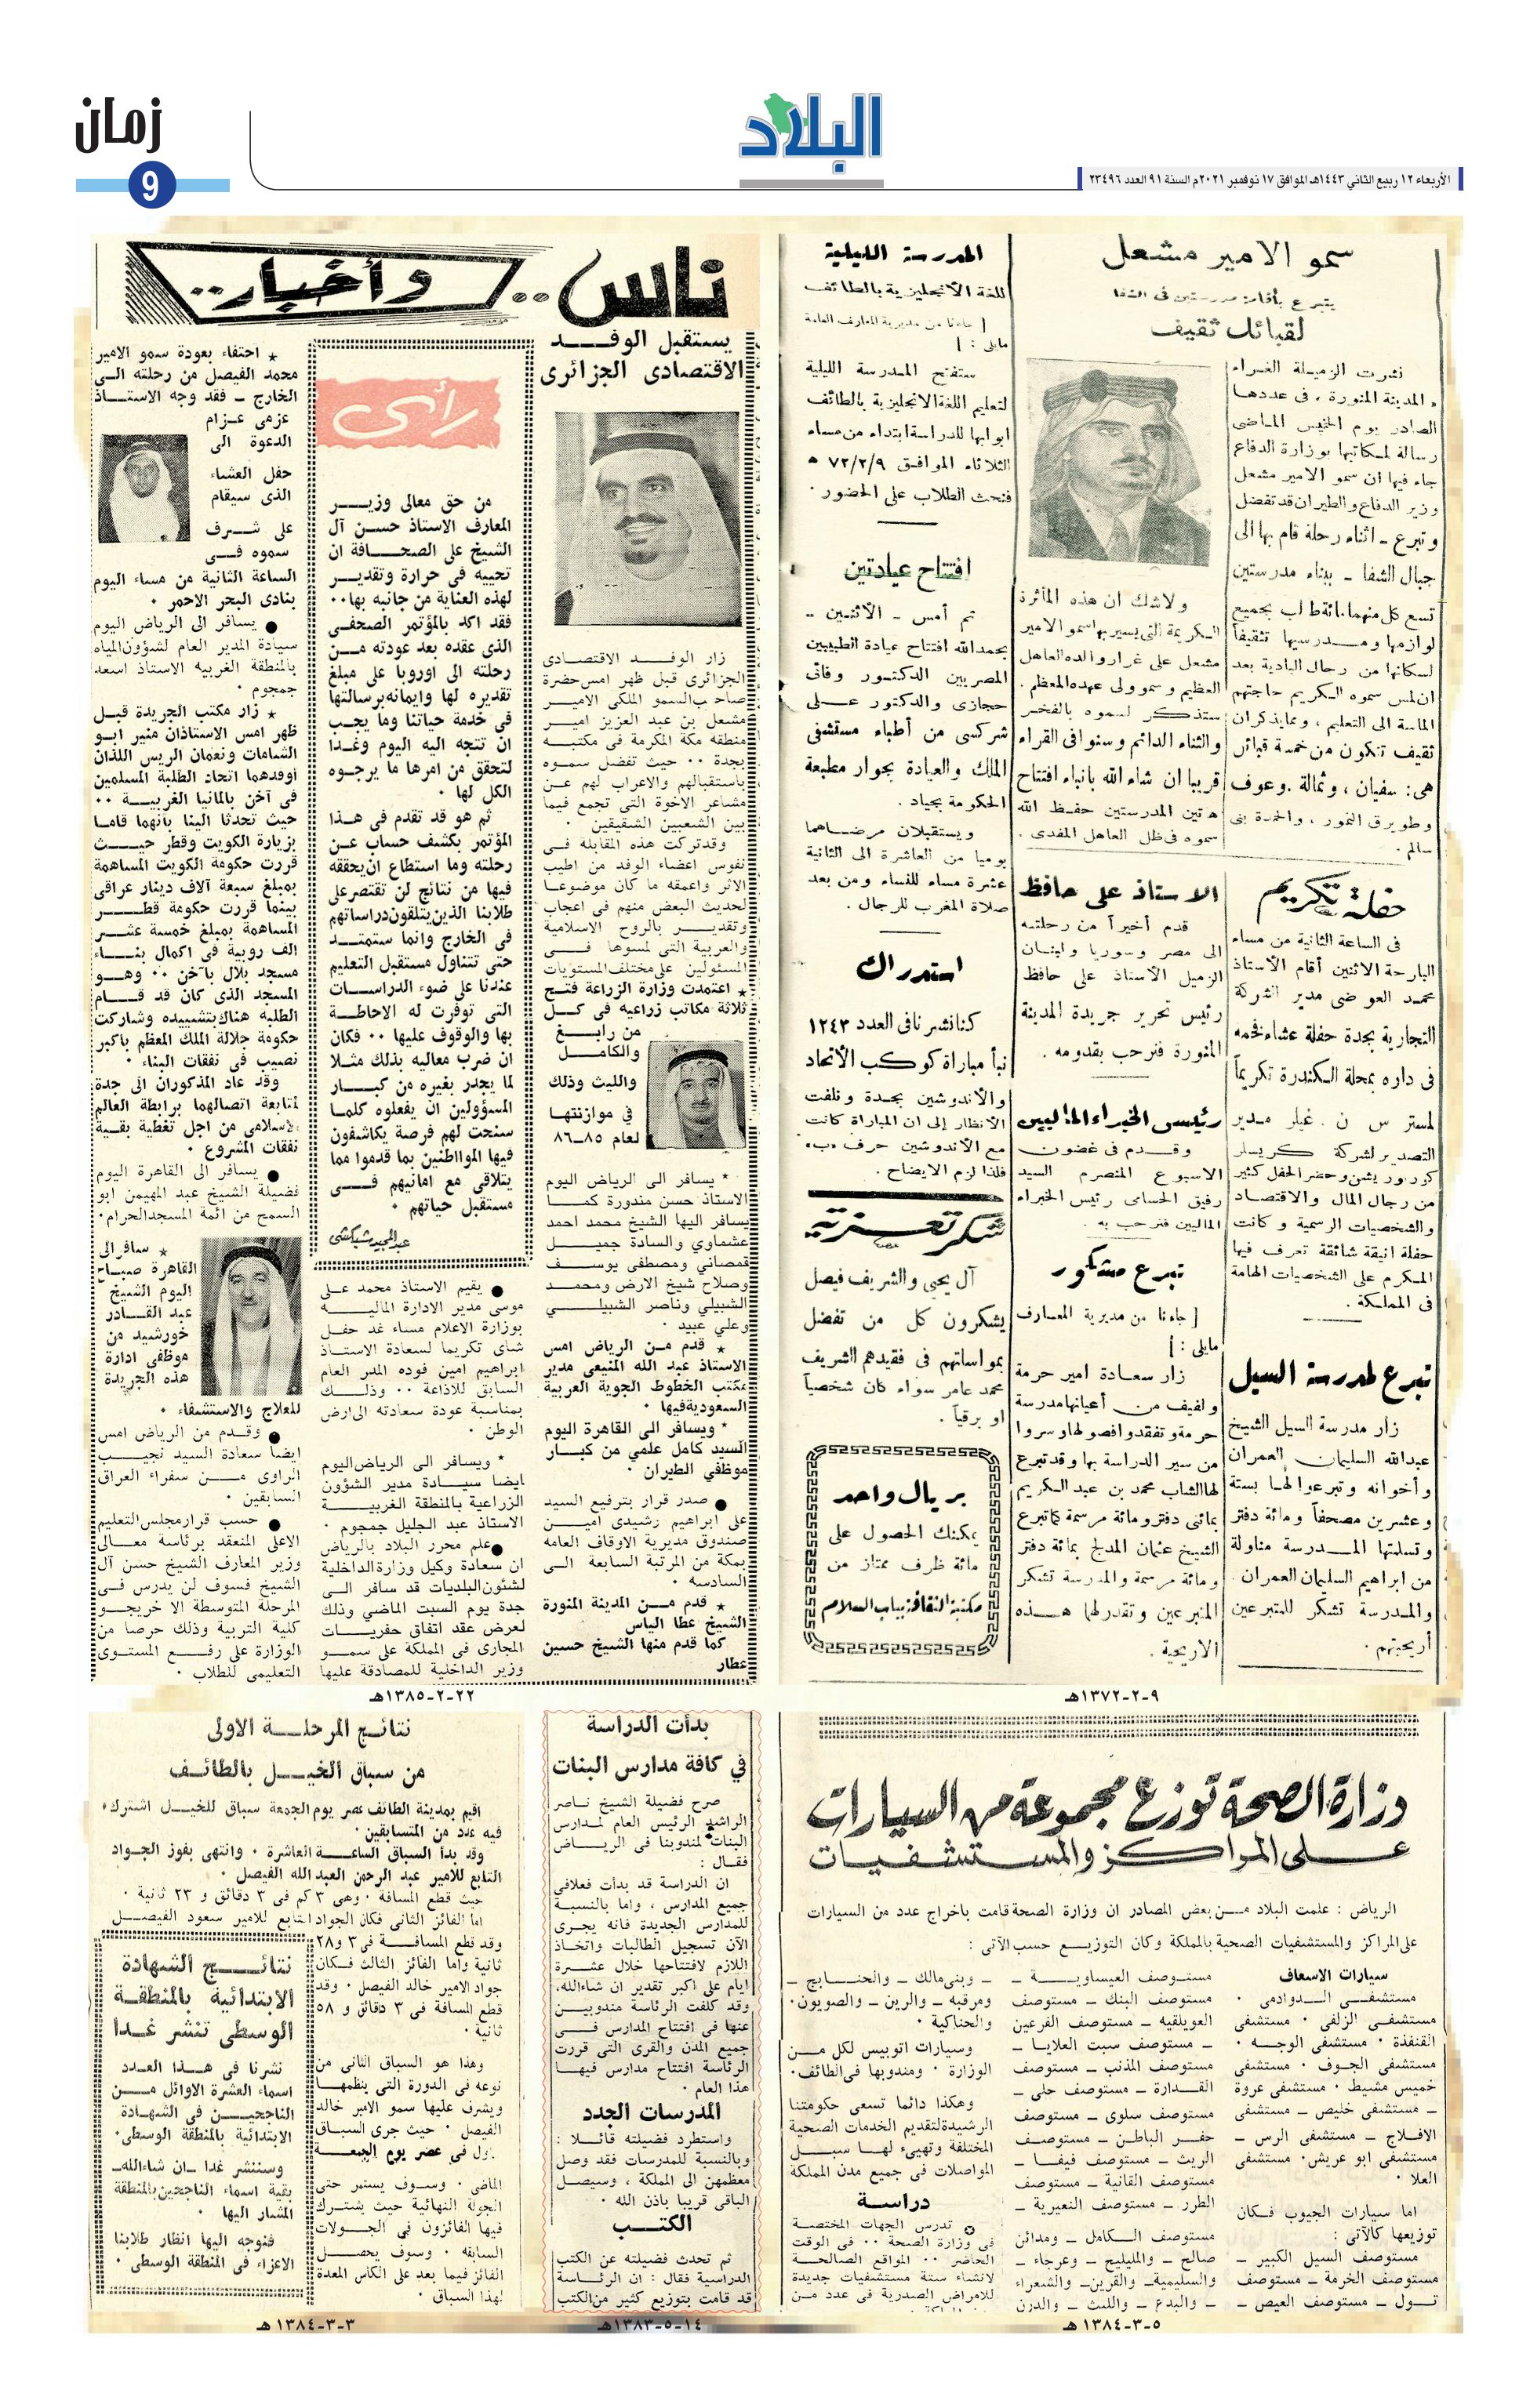 زمان
9
البلاد
الأربعاء ١٢ ربيع الثاني ١٤٤٣هـ الموافق ١٧ نوفمبر ٢٠٢١م السنة ٩١ العدد ٢٣٤٩٦
سمو الامير مشعل
يتبرع بأقامة مدرستين في الشفا
لقبائل ثقيف
نشرت الزميلة الغراء
المدينة المنورة ، في عددها
الصادر يوم الخميس الماضى
رسالة لمكاتبها بوزارة الدفاع
جاء فيها ان سمو الامير مشعل
وزير الدفاع والطيران قد تفضل
وتبرع ــ اثناء رحلة قام بها الى
جبال الشفا ــ ببناء مدرستين
تسع كل منهما مائة طالب بجميع
لوازمها ومدرسيها تثقيفاً
لسكانها من رجال البادية بعد
ان لمس سموه الكريم حاجتهم
الماسة الى التعليم ، ومما يذكر ان
ثقيف تتكون من خمسة قبائل
هى : سفيان ، وثمالة . وعوف
وطويرق النمور ، والحمدة بنى
سالم .
ولاشك ان هذه المأثرة
الكريمة التى يسير بها سمو الامير
مشعل على غرار والده العاهل
العظيم وسمو ولى عهده المعظم .
ستذكر لسموه بالفخر
والثناء الدائم وسنوافى القراء
قريبا ان شاء الله بانباء افتتاح
هتين المدرستين حفظ الله
سموه فى ظل العاهل المفدى .
حفلة تكريم
فى الساعة الثانية من مساء
البارحة الاثنين أقام الأستاذ
محمد العوضى مدير الشركة
التجارية بجدة حفلة عشاء فخمه
فى داره بمحلة الكندرة تكريماً
لمستر س ن . غيلر مدير
التصدير لشركة كريسلر
كوربوريشن وحضر الحفل كثير
من رجال المال والاقتصاد
والشخصيات الرسمية وكانت
حفلة انيقة شائقة تعرف فيها
المكرم على الشخصيات الهامة
فى المملكة .
تبرع لمدرسة السيل
زار مدرسة السيل الشيخ
عبدالله السليمان العمران
وأخوانه وتبرعوا لها بستة
وعشرين مصحفاً ومائة دفتر
وتسلمتها المدرسة مناولة
من ابراهيم السليمان العمران
والمدرسة تشكر للمتبرعين
أريحيتهم .
الاستاذ على حافظ
قدم أخيراً من رحلته
الى مصر وسوريا ولبنان
الزميل الأستاذ على حافظ
رئيس تحرير جريدة المدينة
المنورة فنرحب بقدومه .
رئيس الخبراء الماليين
وقدم فى غضون
الاسبوع المنصرم السيد
رفيق الحسامى رئيس الخبراء
الماليين فنرحب به .
تبرع مشكور
[ جاءنا من مديرية المعارف
مايلى : ]
زار سعادة امير حرمة
ولفيف من أعيانها مدرسة
حرمة وتفقدوا فصولها وسروا
من سير الدراسة بها وقد تبرع
لها الشاب محمد بن عبد الكريم
بمائتى دفتر ومائة مرسمة كما تبرع
الشيخ عثمان المدلج بمائة دفتر
ومائة مرسمة والمدرسة تشكر
المتبرعين وتقدر لهما هذه
الاريحية .
المدرسة الليلية
للغة الأنجليزية بالطائف
[ جاءنا من مديرية المعارف العامة
مايلى : ]
ستفتح المدرسة الليلية
لتعليم اللغة الانجليزية بالطائف
ابوابها للدراسة ابتداء من مساء
الثلاثاء الموافق ٧٢/٢/٩ هـ
فنحث الطلاب على الحضور .
افتتاح عيادتين
تم أمس ــ الأثنين ..
بحمدالله افتتاح عيادة الطبيبين
المصريين الدكتور وفائى
حجازى والدكتور على
شركسى من أطباء مستشفى
الملك والعيادة بجوار مطبعة
الحكومة بجياد .
ويستقبلان مرضاهما
يوميا من العاشرة الى الثانية
عشرة مساء للنساء ومن بعد
صلاة المغرب للرجال .
استدراك
كنا نشرنا فى العدد ١٢٤٣
نبأ مباراة كوكب الأتحاد
والأندوشين بجدة ونلفت
الأنظار إلى ان المباراة كانت
مع الأندوشين حرف «ب»
فلذا لزم الايضاح .
شكر تعزية
آل يحيى والشريف فيصل
يشكرون كل من تفضل
بمواساتهم فى فقيدهم الشريف
محمد عامر سواء كان شخصياً
او برقياً .
بريال واحد
يمكنك الحصول على
مائة ظرف ممتاز من
مكتبة الثقافة بباب السلام
٩-٢-١٣٧٢هـ
ناس .. وأخبار ..
يستقبل الوفد
الاقتصادى الجزائرى
زار الوفد الاقتصادى
الجزائرى قبل ظهر امس حضرة
صاحب السمو الملكى الامير
مشعل بن عبد العزيز امير
منطقة مكة المكرمة فى مكتبه
بجدة ٠٠ حيث تفضل سموه
باستقبالهم والاعراب لهم عن
مشاعر الاخوة التى تجمع فيما
بين الشعبين الشقيقين .
وقد تركت هذه المقابلة فى
نفوس اعضاء الوفد من اطيب
الاثر واعمقه ما كان موضوعا
لحديث البعض منهم فى اعجاب
وتقدير بالروح الاسلامية
والعربية التى لمسوها فى
المسئولين على مختلف المستويات
★ اعتمدت وزارة الزراعة فتح
ثلاثة مكاتب زراعيه فى كل
من رابغ
والكامل
والليث وذلك
في موازنتها
لعام ٨٥ــ٨٦
* يسافر الى الرياض اليوم
الاستاذ حسن مندورة كما
يسافر اليها الشيخ محمد احمد
عشماوي والسادة جميل
قمصاني ومصطفى يوسف
وصلاح شيخ الارض ومحمد
الشبيلي وناصر الشبيلي
وعلي عبيد .
★ قدم من الرياض امس
الاستاذ عبد الله المنيعى مدير
مكتب الخطوط الجوية العربية
السعودية فيها .
* ويسافر الى القاهرة اليوم
السيد كامل علمي من كبار
موظفي الطيران .
● صدر قرار بترفيع السيد
على ابراهيم رشيدى امين
صندوق مديرية الاوقاف العامه
بمكة من المرتبة السابعة الى
السادسه .
★ قدم من المدينة المنورة
الشيخ عطا الياس
كما قدم منها الشيخ حسين
عطار
رأى
من حق معالى وزير
المعارف الاستاذ حسن آل
الشيخ على الصحافة ان
تحييه فى حرارة وتقدير
لهذه العناية من جانبه بها٠٠
فقد اكد بالمؤتمر الصحفى
الذى عقده بعد عودته من
رحلته الى اوروبا على مبلغ
تقديره لها وايمانه برسالتها
فى خدمة حياتنا وما يجب
ان تتجه اليه اليوم وغدا
لتحقق من امرها ما يرجوه
الكل لها .
ثم هو قد تقدم فى هذا
المؤتمر بكشف حساب عن
رحلته وما استطاع ان يحققه
فيها من نتائج لن تقتصر على
طلابنا الذين يتلقون دراساتهم
فى الخارج وانما ستمتد
حتى تتناول مستقبل التعليم
عندنا على ضوء الدراسات
التى توفرت له الاحاطة
بها والوقوف عليها ٠٠ فكان
ان ضرب معاليه بذلك مثلا
لما يجدر بغيره من كبار
المسؤولين ان يفعلوه كلما
سنحت لهم فرصة يكاشفون
فيها المواطنين بما قدموا مما
يتلاقى مع امانيهم فى
مستقبل حياتهم .
عبدالمجيد شبكشى
● يقيم الاستاذ محمد على
موسى مدير الادارة الماليه
بوزارة الاعلام مساء غد حفل
شاى تكريما لسعادة الاستاذ
ابراهيم امين فوده المدر العام
السابق للاذاعة ٠٠ وذلك
بمناسبة عودة سعادته الى ارض
الوطن .
* ويسافر الى الرياض اليوم
ايضا سيادة مدير الشؤون
الزراعية بالمنطقة الغربية
الاستاذ عبد الجليل جمجوم .
● علم محرر البلاد بالرياض
ان سعادة وكيل وزارة الداخلية
لشئون البلديات قد سافر الى
جدة يوم السبت الماضي وذلك
لعرض عقد اتفاق حفريات
المجارى فى المملكة على سمو
وزير الداخلية للمصادقة عليها
★ احتفاء بعودة سمو الامير
محمد الفيصل من رحلته الى
الخارج ــ فقد وجه الاستاذ
عزمى عزام
الدعوة الى
حفل العشاء
الذى سيقام
على شرف
سموه فى
الساعة الثانية من مساء اليوم
بنادى البحر الاحمر .
● يسافر الى الرياض اليوم
سيادة المدير العام لشؤون المياه
بالمنطقة الغربيه الاستاذ اسعد
جمجوم .
★ زار مكتب الجريدة قبل
ظهر امس الاستاذان منير ابو
الشامات ونعمان الريس اللذان
أوفدهما اتحاد الطلبة المسلمين
فى آخن بالمانيا الغربية ٠٠
حيث تحدثا الينا بأنهما قاما
بزيارة الكويت وقطر حيث
قررت حكومة الكويت المساهمة
بمبلغ سبعة آلاف دينار عراقى
بينما قررت حكومة قطر
المساهمة بمبلغ خمسة عشر
الف روبية فى اكمال بناء
مسجد بلال بآخن ٠٠ وهو
المسجد الذى كان قد قام
الطلبه هناك بتشييده وشاركت
حكومة جلالة الملك المعظم بأكبر
نصيب فى نفقات البناء .
وقد عاد المذكوران الى جدة
لمتابعة اتصالهما برابطة العالم
الاسلامى من اجل تغطية بقية
نفقات المشروع .
● يسافر الى القاهرة اليوم
فضيلة الشيخ عبد المهيمن ابو
السمح من ائمة المسجد الحرام.
★ سافر الى
القاهرة صباح
اليوم الشيخ
عبد القادر
خورشيد من
موظفى ادارة
هذه الجريدة
للعلاج والاستشفاء .
● وقدم من الرياض امس
ايضا سعادة السيد نجيب
الراوى من سفراء العراق
السابقين .
● حسب قرار مجلس التعليم
الاعلى المنعقد برئاسة معالى
وزير المعارف الشيخ حسن آل
الشيخ فسوف لن يدرس فى
المرحلة المتوسطة الا خريجو
كلية التربية وذلك حرصا من
الوزارة على رفع المستوى
التعليمى للطلاب .
٢٢-٢-١٣٨٥هـ
وزارة الصحة توزع مجموعة من السيارات
على المراكز والمستشفيات
الرياض : علمت البلاد من بعض المصادر ان وزارة الصحة قامت باخراج عدد من السيارات
على المراكز والمستشفيات الصحية بالمملكة وكان التوزيع حسب الآتى :
سيارات الاسعاف
مستشفى الدوادمى .
مستشفى الزلفى . مستشفى
القنفذة . مستشفى الوجه .
مستشفى الجوف . مستشفى
خميس مشيط . مستشفى عروة
ــ مستشفى خليص ــ مستشفى
الافلاج ــ مستشفى الرس ــ
مستشفى ابو عريش. مستشفى
العلا .
اما سيارات الجيوب فكان
توزيعها كالآتى :
مستوصف السيل الكبير ــ
مستوصف الخرمة ــ مستوصف
تول ــ مستوصف العيص ــ
مستوصف العيساوية ــ
مستوصف البنك ــ مستوصف
العويلقيه ــ مستوصف الفرعين
ــ مستوصف سبت العلايا ــ
مستوصف المذنب ــ مستوصف
القدارة ــ مستوصف حلى ــ
مستوصف سلوى ــ مستوصف
حفر الباطن ــ مستوصف
الريث ــ مستوصف فيفا ــ
مستوصف القانية ــ مستوصف
الطرر ــ مستوصف النعيرية ــ
مستوصف الكامل ــ ومدائن
صالح ــ والمليليح ــ وعرجاء ــ
والسليمية ــ والقرين ــ والشعراء
ــ والبدع ــ والليث ــ والدرن
ــ وبنى مالك ــ والحنابج ــ
ومرقبه ــ والرين ــ والصويون.
والحناكية .
وسيارات اتوبيس لكل من
الوزارة . ومندوبها فى الطائف.
وهكذا دائما تسعى حكومتنا
الرشيدة لتقديم الخدمات الصحية
المختلفة وتهيىء لها سبل
المواصلات فى جميع مدن المملكة
دراسة
تدرس الجهات المختصة
فى وزارة الصحة ٠٠ فى الوقت
الحاضر ٠٠ المواقع الصالحة
لانشاء ستة مستشفيات جديدة
للامراض الصدرية فى عدد من
٥-٣-١٣٨٤هـ
بدأت الدراسة
في كافة مدارس البنات
صرح فضيلة الشيخ ناصر
الراشد الرئيس العام لمدارس
البنات لمندوبنا فى الرياض
فقال :
ان الدراسة قد بدأت فعلا فى
جميع المدارس ، واما بالنسبة
للمدارس الجديدة فانه يجرى
الآن تسجيل الطالبات واتخاذ
اللازم لافتتاحها خلال عشرة
ايام على اكبر تقدير ان شاءالله،
وقد كلفت الرئاسة مندوبين
عنها فى افتتاح المدارس فى
جميع المدن والقرى التى قررت
الرئاسة افتتاح مدارس فيها
هذا العام .
المدرسات الجدد
واستطرد فضيلته قائلا :
وبالنسبة للمدرسات فقد وصل
معظمهن الى المملكة ، وسيصل
الباقى قريبا باذن الله .
الكتب
ثم تحدث فضيلته عن الكتب
الدراسية فقال : ان الرئاسة
قد قامت بتوزيع كثير من الكتب
١٤-٥-١٣٨٣هـ
نتائج المرحلة الاولى
من سباق الخيل بالطائف
اقيم بمدينة الطائف عصر يوم الجمعة سباق للخيل اشترك
فيه عدد من المتسابقين .
وقد بدأ السباق الساعة العاشرة . وانتهى بفوز الجواد
التابع للامير عبد الرحمن العبد الله الفيصل .
حيث قطع المسافة . وهى ٣ كم فى ٣ دقائق و ٢٣ ثانية .
اما الفائز الثانى فكان الجواد التابع للامير سعود الفيصل
وقد قطع المسافة فى ٣ و٢٨
ثانية واما الفائز الثالث فكان
جواد الامير خالد الفيصل . وقد
قطع المسافة فى ٣ دقائق و ٥٨
ثانية .
وهذا هو السباق الثانى من
نوعه فى الدورة التى ينظمها
ويشرف عليها سمو الامير خالد
الفيصل . حيث جرى السباق
الاول فى عصر يوم الجمعة
الماضى . وسوف يستمر حتى
الجولة النهائية حيث يشترك
فيها الفائزون فى الجولات
السابقه . وسوف يحصل
الفائز فيما بعد على الكأس المعدة
لهذا السباق .
نتائج الشهادة
الابتدائية بالمنطقة
الوسطى تنشر غدا
نشرنا فى هذا العدد
اسماء العشرة الاوائل من
الناجحين فى الشهادة
الابتدائية بالمنطقة الوسطى.
وسننشر غدا ــ ان شاءالله ــ
بقية اسماء الناجحين بالمنطقة
المشار اليها .
فنوجه اليها انظار طلابنا
الاعزاء فى المنطقة الوسطى .
٣-٣-١٣٨٤هـ